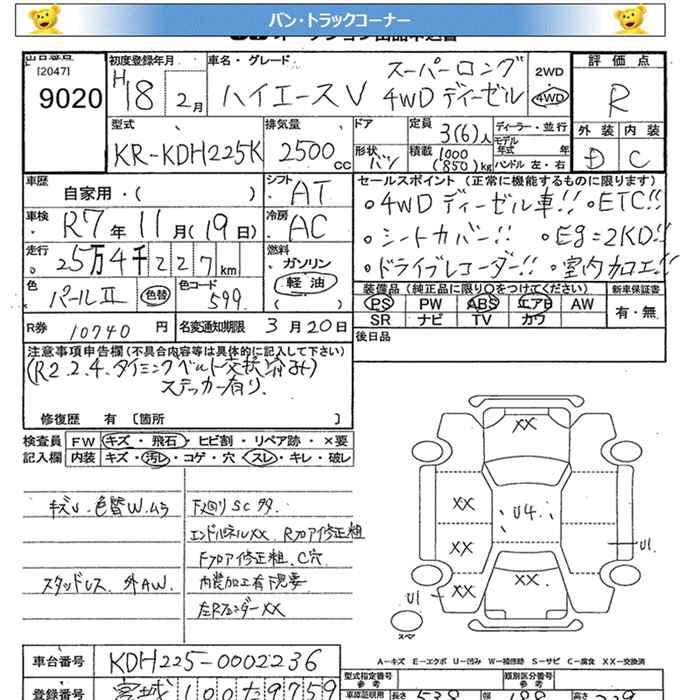 バン・トラックコーナー
オークション出品申込書
出品番号
[2047]
9020
初度登録年月
H18 2月
車名・グレード
ハイエースV スーパーロング
4WD ディーゼル
2WD
4WD
評価点
R
外装 内装
D C
型式
KR-KDH225K
排気量
2500 cc
ドア
形状
バン
定員
3(6)人
積載
1000
(850)kg
ディーラー・並行
モデル
年式 年
ハンドル 左・右
車歴
自家用・( )
シフト
AT
車検
R7年11月(19日)
冷房
AC
走行
25万4千227km
燃料
ガソリン
軽油
色
パールⅡ 色替
色コード
599
R券 10740円
名変通知期限 3月20日
セールスポイント (正常に機能するものに限ります)
○4WDディーゼル車!! ○ETC!!
○シートカバー!! ○Eg=2KD!!
○ドライブレコーダー!! ○室内加工!!
装備品 (純正品に限り○をつけてください)
PS PW ABS エアB AW
SR ナビ TV カワ
新車保証書
有・無
後日品
注意事項申告欄(不具合内容等は具体的に記入して下さい)
(R2.2.4.タイミングベルト交換済み)
ステッカー有り.
修復歴 有 [箇所 ]
検査員
記入欄
FW キズ・飛石・ヒビ割・リペア跡・×要
内装 キズ・汚レ・コゲ・穴・スレ・キレ・破レ
キズU.色替W.ムラ
スタッドレス.外AW.
下廻りSCサタ.
エンドパネルXX.Rフロア修正粗
Fフロア修正粗.C穴
内装加工有下見要
左RフェンダーXX
XX
XX
U4
XX
XX
XX
U1
U1
スペア
A=キズ E=エクボ U=凹み W=補修跡 S=サビ C=腐食 XX=交換済
車台番号 KDH225-0002236
登録番号 宮城100た9759
型式指定番号
参考
類別区分番号
参考
車庫証明用
参考
長さ 538 幅 188 高さ